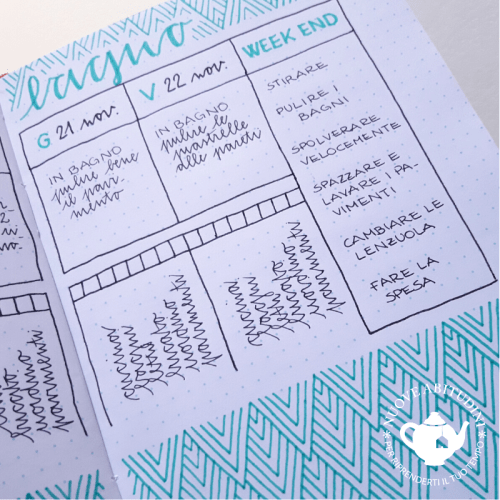 bagno
G 21 nov.
V 22 nov.
WEEK END
IN BAGNO
pulire bene
il pavi-
mento
IN BAGNO
pulire le
piastrelle
delle pareti
STIRARE
PULIRE I
BAGNI
SPOLVERARE
VELOCEMENTE
SPAZZARE E
LAVARE I PA-
VIMENTI
CAMBIARE LE
LENZUOLA
FARE LA
SPESA
NUOVE ABITUDINI
* PER RIPRENDERTI IL TUO TEMPO *